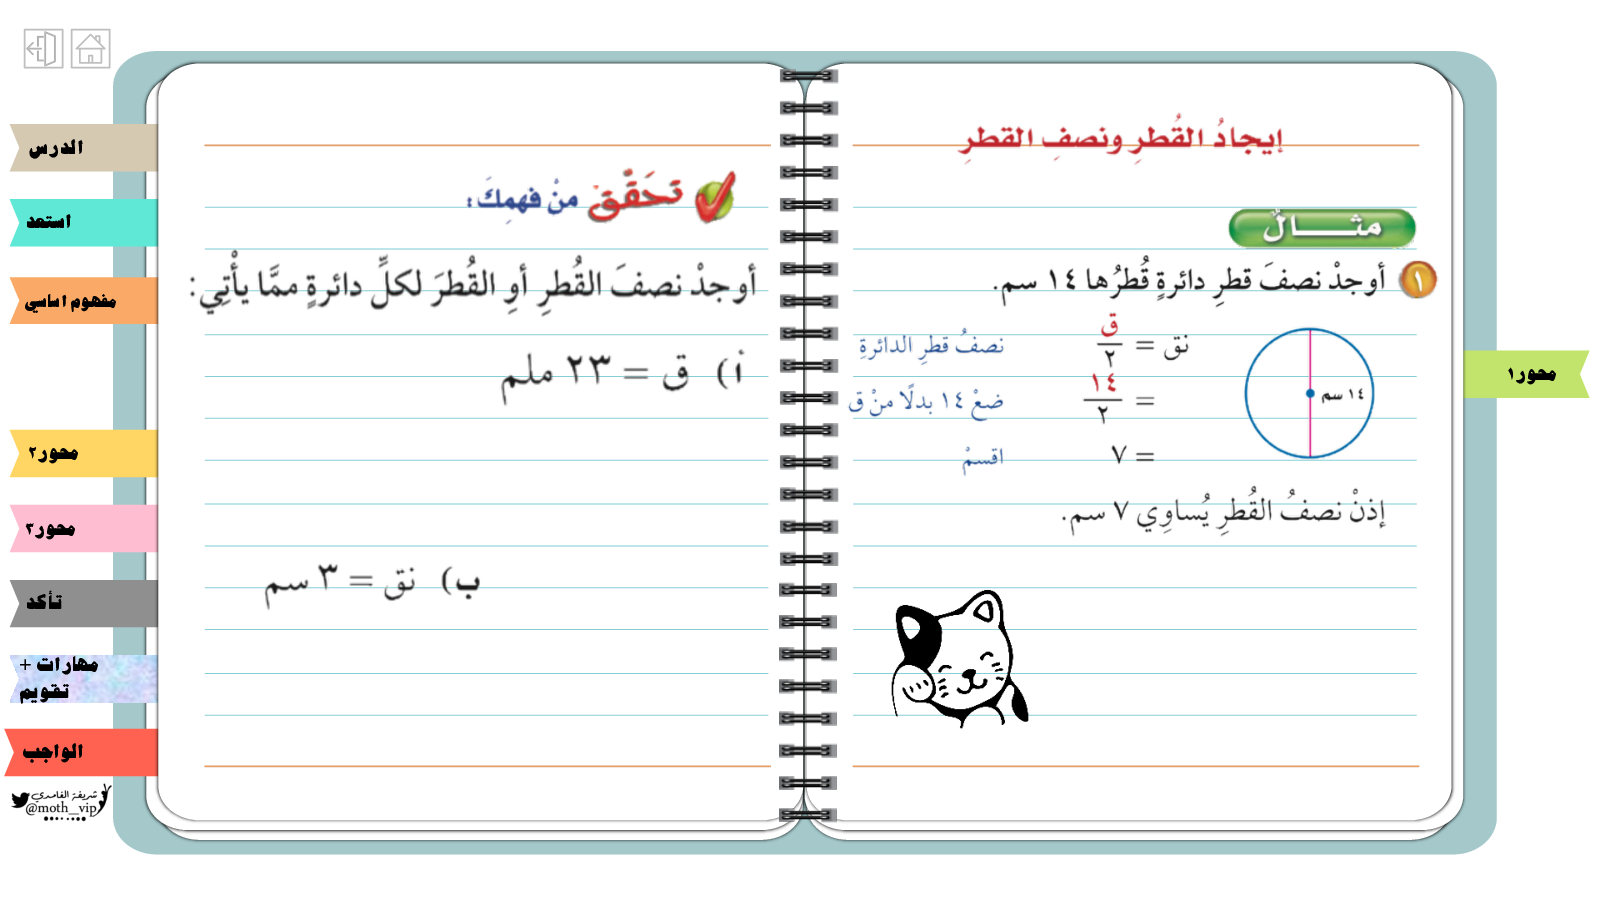 إيجادُ القُطرِ ونصفِ القطرِ
مثـــال
١ أوجدْ نصفَ قطرِ دائرةٍ قُطرُها ١٤ سم.
نق = ق/٢ نصفُ قطرِ الدائرةِ
= ١٤/٢ ضعْ ١٤ بدلًا منْ ق
= ٧ اقسمْ
١٤ سم
إذنْ نصفُ القُطرِ يُساوِي ٧ سم.
تَحَقَّقْ منْ فهمِكَ:
أوجدْ نصفَ القُطرِ أوِ القُطرَ لكلِّ دائرةٍ ممَّا يأْتِي:
أ) ق = ٢٣ ملم
ب) نق = ٣ سم
محور١
الدرس
استعد
مفهوم اساسي
محور٢
محور٣
تأكد
مهارات +
تقويم
الواجب
شريفة الغامدي
@moth_vip